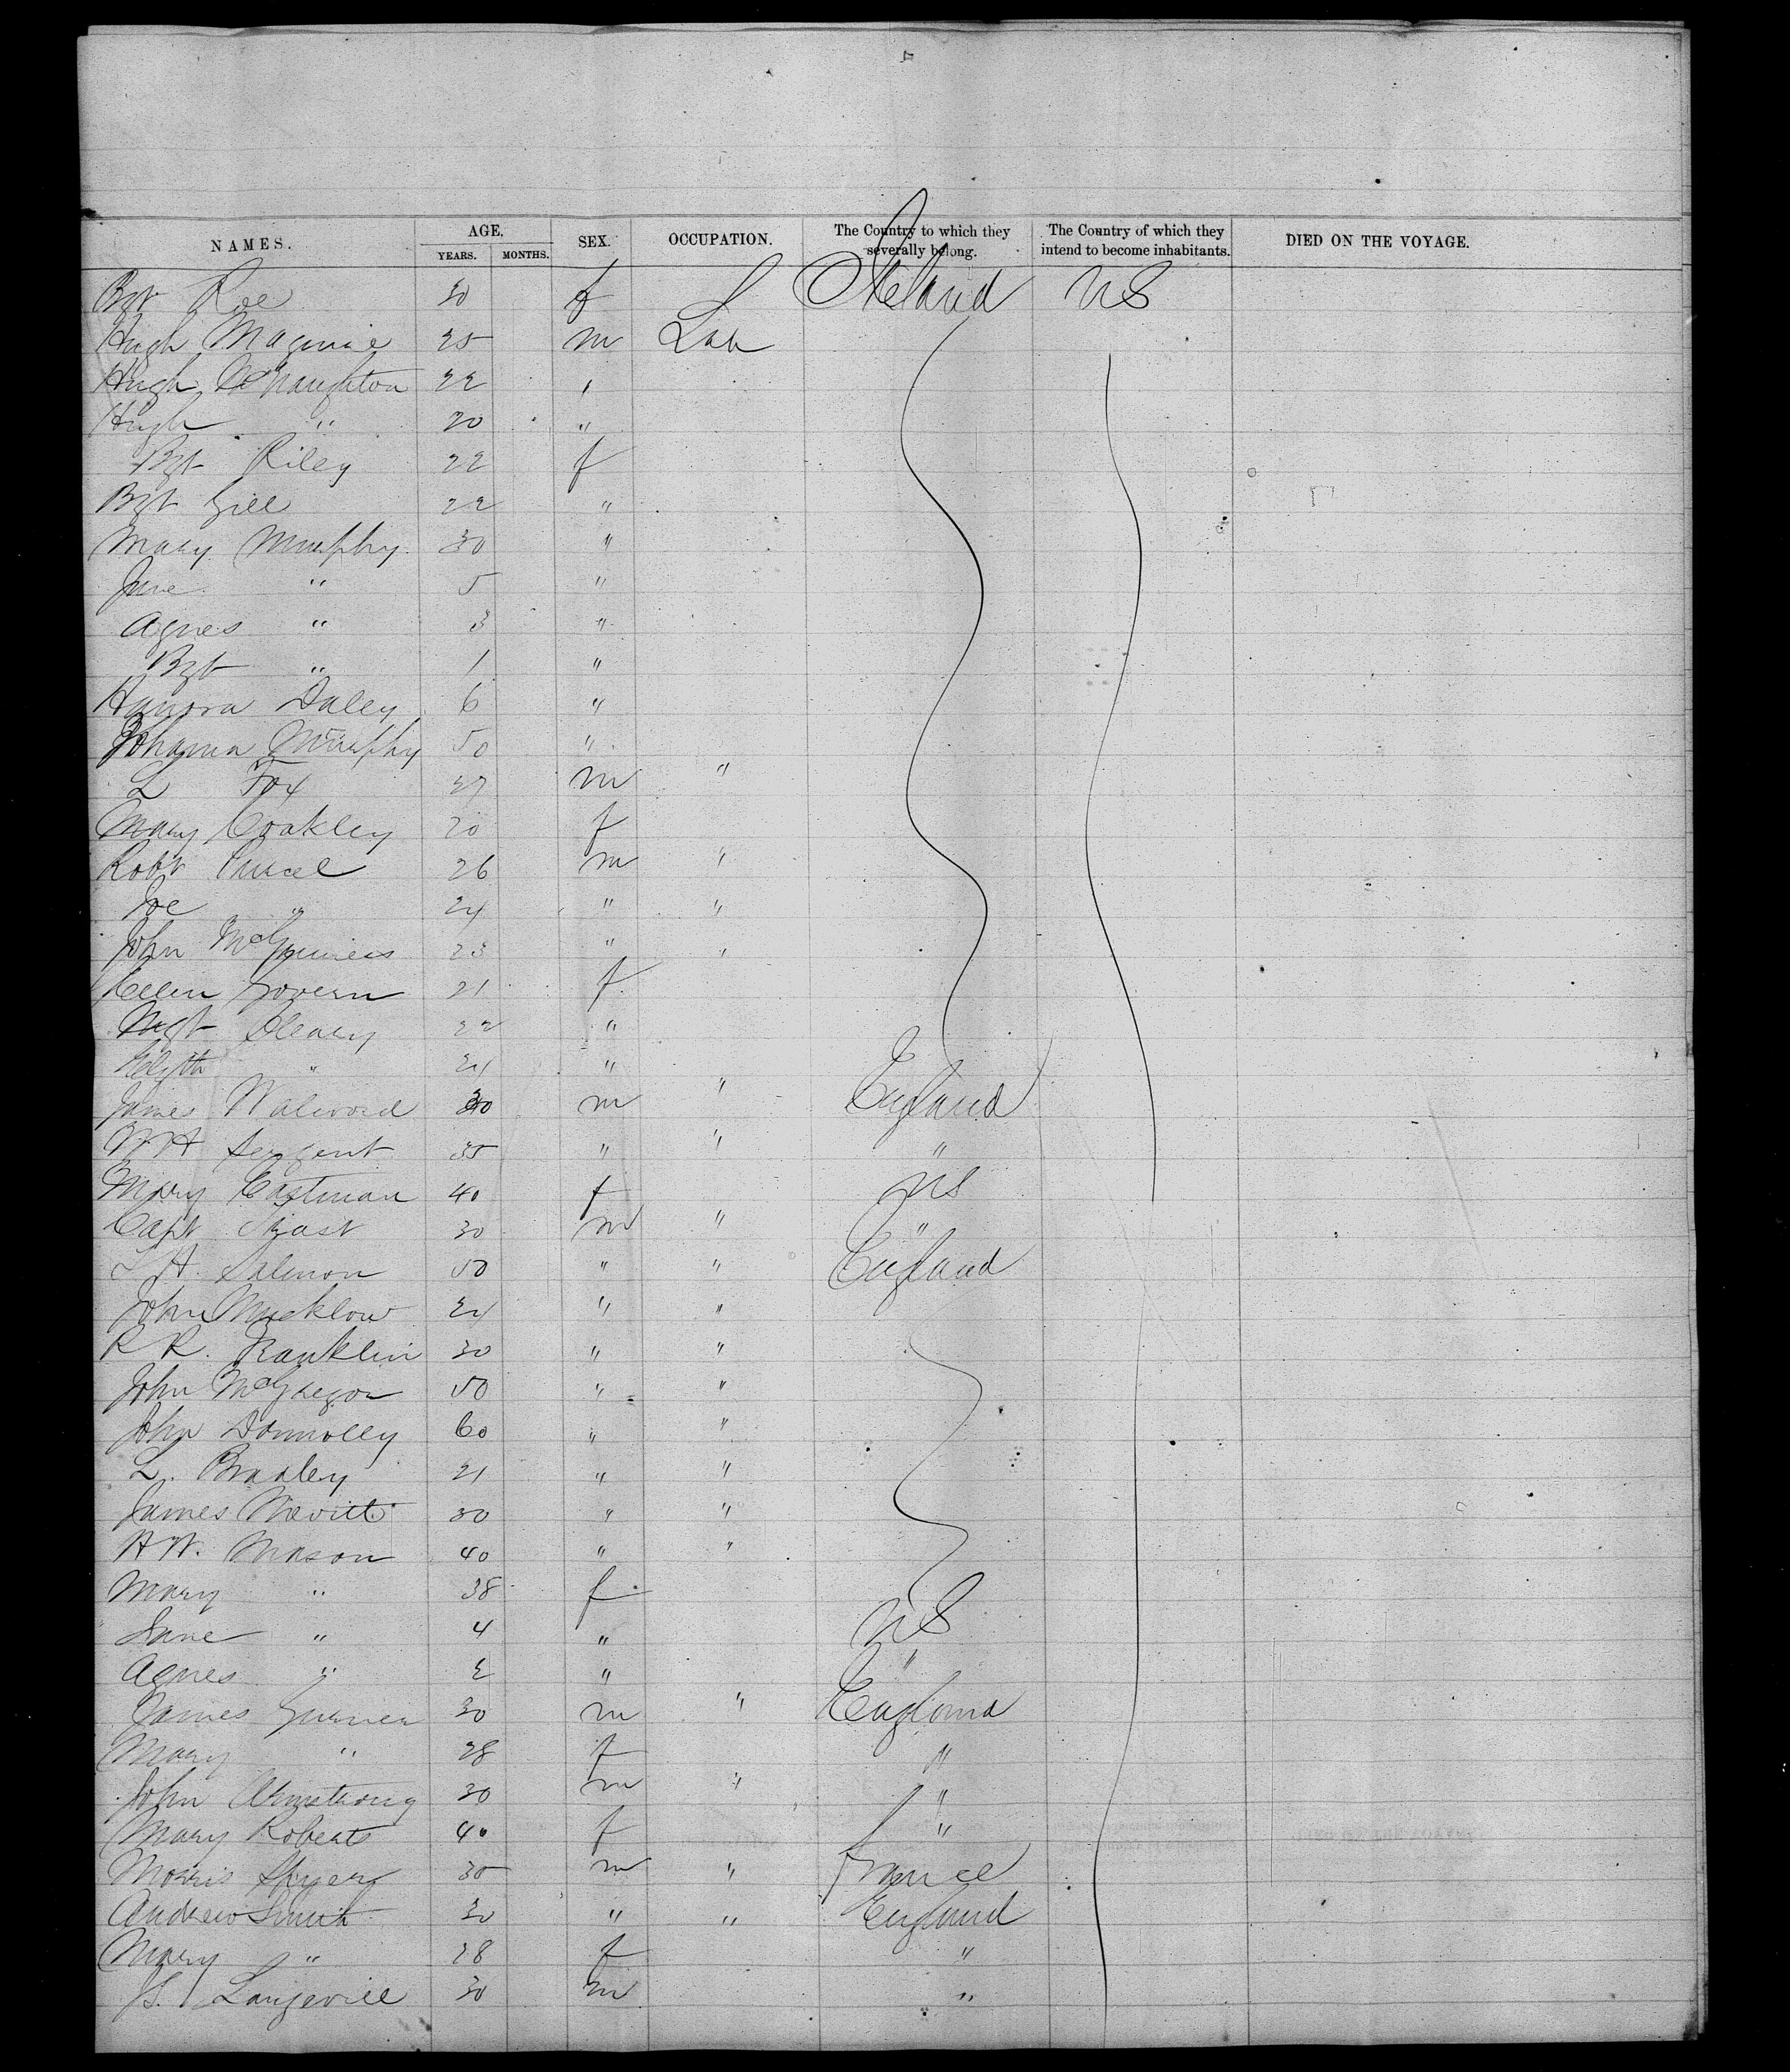 NAMES. AGE. YEARS. MONTHS. SEX. OCCUPATION. The Country to which they severally belong. The Country of which they intend to become inhabitants. DIED ON THE VOYAGE.
Bgt Roe 30 f Ireland US
Hugh Maguire 25 m Lab
Hugh McNaughton 22 "
Hugh " 20 "
Bgt Riley 22 f
Bgt Gill 22 "
Mary Murphy 30 "
Jane " 5 "
Agnes " 3 "
Bgt " 1 "
Hanora Daley 6 "
Johanna Murphy 50 "
L Fox 27 m "
Mary Coakley 20 f
Robt 26 m "
Joe " 24 " "
John McGuiness 23 " "
Ellen Govern 21 f
Mgt Oleary 22 "
Elizth " 24 "
James Walword 30 m " England
W H Sergent 35 " " "
Mary Eastman 40 f US
Capt 30 m " "
L H. Salmon 50 " " England
John Mucklow 24 " "
R R. Franklin 30 " "
John McGregor 50 " "
John Donnolly 60 " "
L. Bradley 21 " "
James Nevitt 30 " "
H W. Mason 40 " "
Mary " 38 f
Jane " 4 " US
Agnes " 2 " "
James 30 m " England
Mary " 28 f "
John Armstrong 30 m " "
Mary Roberts 40 f "
Morris 35 m " France
Andrew Smith 30 " " England
Mary " 28 f "
Langevill 30 m "